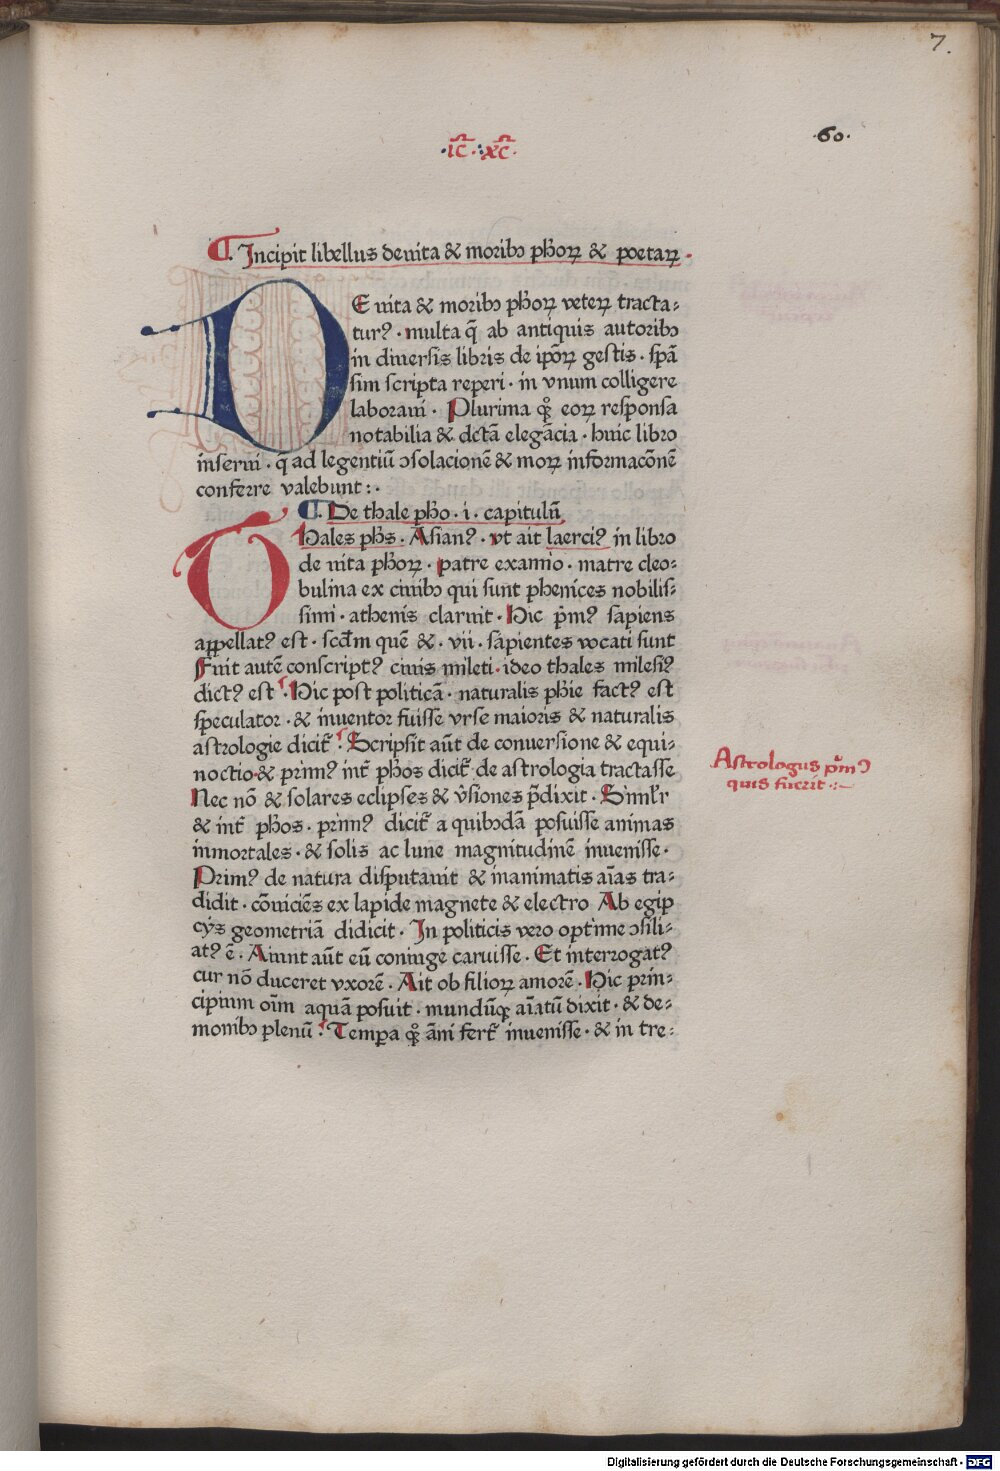 7.
.60.
.ic̄.:xc̄.
¶. Incipit libellus de uita & moribꝰ pħoꝝ & poetaꝝ.
DE uita & moribꝰ pħoꝝ veteꝝ tracta⸗
turꝰ . multa q̄ ab antiquis autoribꝰ
in diuersis libris de ip̄oꝝ gestis . spā
sim scripta reperi . in vnum colligere
laboraui . Plurima qꝫ eoꝝ responsa
notabilia & dc̄tā elegācia . huic libro
inserui . q̄ ad legentiū ↄsolacionē & moꝝ informacōnē
conferre valebunt :.
¶. De thale pħo . i . capitulū
Thales pħs . Asianꝰ . vt ait laerciꝰ in libro
de uita pħoꝝ . patre examio . matre cleo⸗
bulina ex ciuibꝰ qui sunt phenices nobilis⸗
simi . athenis claruit . Hic p̄mꝰ sapiens
appellatꝰ est . scd̄m quē & . vii . sapientes vocati sunt
Fuit autē conscriptꝰ ciuis mileti . ideo thales milesiꝰ
dictꝰ est . Hic post politicā . naturalis pħie factꝰ est
speculator . & inuentor fuisse vrse maioris & naturalis
astrologie dicit̄ . Scripsit aūt de conuersione & equi⸗
noctio . & primꝰ int̄ pħos dicit̄ de astrologia tractasse
Nec nō & solares eclipses & v̄siones p̄dixit . Simil̄r
& int̄ pħos . primꝰ dicit̄ a quibꝰdā posuisse animas
inmortales . & solis ac lune magnitudinē inuenisse .
Primꝰ de natura disputauit & inanimatis aīas tra⸗
didit . cōuiciēs ex lapide magnete & electro Ab egip
cijs geometriā didicit . In politicis vero optime ↄsili⸗
atꝰ ē . Aiunt aūt eū coniuge caruisse . Et interrogatꝰ
cur nō duceret vxorē . Ait ob filioꝝ amorē . Hic prin⸗
cipium oīm aquā posuit . mundūqꝫ aīatū dixit . & de⸗
monibꝰ plenū . Tempa qꝫ āni fert̄ inuenisse . & in tre⸗
Astrologus p̄mꝰ
quis fuerit .:~
Digitalisierung gefördert durch die Deutsche Forschungsgemeinschaft - DFG